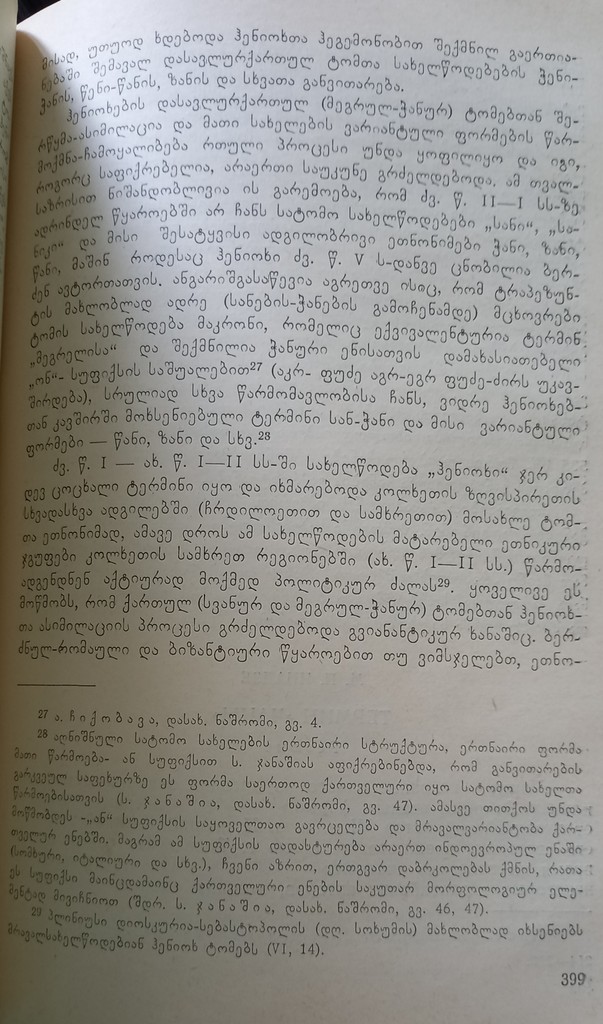 მისად, უთუოდ ხდებოდა ჰენიოხთა ჰეგემონობით შექმნილ გაერთია-
ნებაში შემავალ დასავლურქართულ ტომთა სახელწოდებების ჰენი-
ჭანის, წენი-წანის, ზანის და სხვათა განვითარება.
ჰენიოხების დასავლურქართულ (მეგრულ-ჭანურ) ტომებთან შე-
რწყმა-ასიმილაცია და მათი სახელების ვარიანტული ფორმების წარ-
მოქმნა-ჩამოყალიბება რთული პროცესი უნდა ყოფილიყო და იგი,
როგორც საფიქრებელია, არაერთი საუკუნე გრძელდებოდა. ამ თვალ-
საზრისით ნიშანდობლივია ის გარემოება, რომ ძვ. წ. II—I სს-ზე
ადრინდელ წყაროებში არ ჩანს სატომო სახელწოდებები „სანი“, „სა-
ნიკი“ და მისი შესატყვისი ადგილობრივი ეთნონიმები ჭანი, ზანი,
წანი, მაშინ როდესაც ჰენიოხი ძვ. წ. V ს-დანვე ცნობილია ბერ-
ძენ ავტორთათვის. ანგარიშგასაწევია აგრეთვე ისიც, რომ ტრაპეზუნ-
ტის მახლობლად ადრე (სანების-ჭანების გამოჩენამდე) მცხოვრები
ტომის სახელწოდება მაკრონი, რომელიც ექვივალენტურია ტერმინ
„მეგრელისა“ და შექმნილია ჭანური ენისათვის დამახასიათებელი
„ონ“- სუფიქსის საშუალებით27 (აკრ- ფუძე აგრ-ეგრ ფუძე-ძირს უკავ-
შირდება), სრულიად სხვა წარმომავლობისა ჩანს, ვიდრე ჰენიოხებ-
თან კავშირში მოხსენიებული ტერმინი სან-ჭანი და მისი ვარიანტული
ფორმები — წანი, ზანი და სხვ.28
ძვ. წ. I — ახ. წ. I—II სს-ში სახელწოდება „ჰენიოხი“ ჯერ კი-
დევ ცოცხალი ტერმინი იყო და იხმარებოდა კოლხეთის ზღვისპირეთის
სხვადასხვა ადგილებში (ჩრდილოეთით და სამხრეთით) მოსახლე ტომ-
თა ეთნონიმად, ამავე დროს ამ სახელწოდების მატარებელი ეთნიკური
ჯგუფები კოლხეთის სამხრეთ რეგიონებში (ახ. წ. I—II სს.) წარმო-
ადგენდნენ აქტიურად მოქმედ პოლიტიკურ ძალას29. ყოველივე ეს
მოწმობს, რომ ქართულ (სვანურ და მეგრულ-ჭანურ) ტომებთან ჰენიოხ-
თა ასიმილაციის პროცესი გრძელდებოდა გვიანანტიკურ ხანაშიც. ბერ-
ძნულ-რომაული და ბიზანტიური წყაროებით თუ ვიმსჯელებთ, ეთნო-
27 ა. ჩიქობავა, დასახ. ნაშრომი, გვ. 4.
28 აღნიშნული სატომო სახელების ერთნაირი სტრუქტურა, ერთნაირი ფორმა
მათი წარმოება- ან სუფიქსით ს. ჯანაშიას აფიქრებინებდა, რომ განვითარების
გარკვეულ საფეხურზე ეს ფორმა საერთოდ ქართველური იყო სატომო სახელთა
წარმოებისათვის (ს. ჯანაშია, დასახ. ნაშრომი, გვ. 47). ამასვე თითქოს უნდა
მოწმობდეს -„ან“ სუფიქსის საყოველთაო გავრცელება და მრავალვარიანტობა ქარ-
თველურ ენებში. მაგრამ ამ სუფიქსის დადასტურება არაერთ ინდოევროპულ ენაში
(სომხური, იტალიური და სხვ.), ჩვენი აზრით, ერთგვარ დაბრკოლებას ქმნის, რათა
ეს სუფიქსი მაინცდამაინც ქართველური ენების საკუთარ მორფოლოგიურ ელე-
მენტად მივიჩნიოთ (შდრ. ს. ჯანაშია, დასახ. ნაშრომი, გვ. 46, 47).
29 პლინიუსი დიოსკურია-სებასტოპოლის (დღ. სოხუმის) მახლობლად იხსენიებს
მრავალსახელწოდებიან ჰენიოხ ტომებს (VI, 14).
399